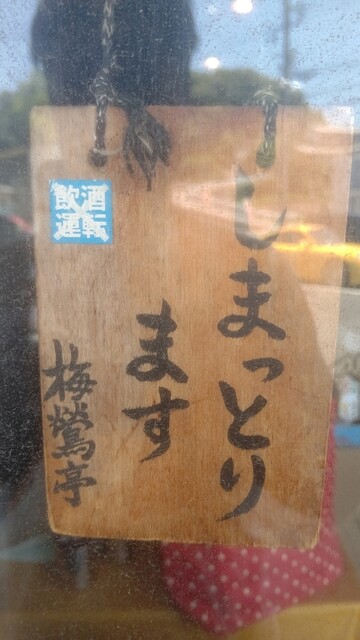 しまっとり
ます
梅鶯亭
飲酒
運転